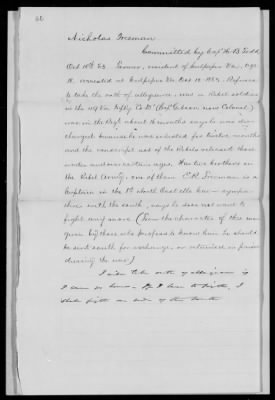 50
Nicholas Freeman
Committed by Capt H. B. Todd
Oct 15th 63. Farmer, resident of Culpepper Va. Age
18. arrested at Culpepper Va. Oct 12 1863. Refuses
to take the oath of allegiance, was a Rebel soldier
in the 114 Va. Mility Co "D" (Capt Gibson now Colonel)
was in the Regt about 18 months says he was dis-
charged because he was enlisted for twelve months
and the conscript act of the Rebels released those
under and over certain ages. Has two brothers in
the Rebel Army, one of them E.R. Freeman is a
Captain in the 1st North Carolina Cav - sympa-
thises with the south, says he does not want to
fight any more (From the character of this man
given by those who profess to know him he should
be sent south for exchange or retained in prison
during the war)
I will take oath of allegiance if
I can go home - If I have to fight, I
shall fight on side of the South